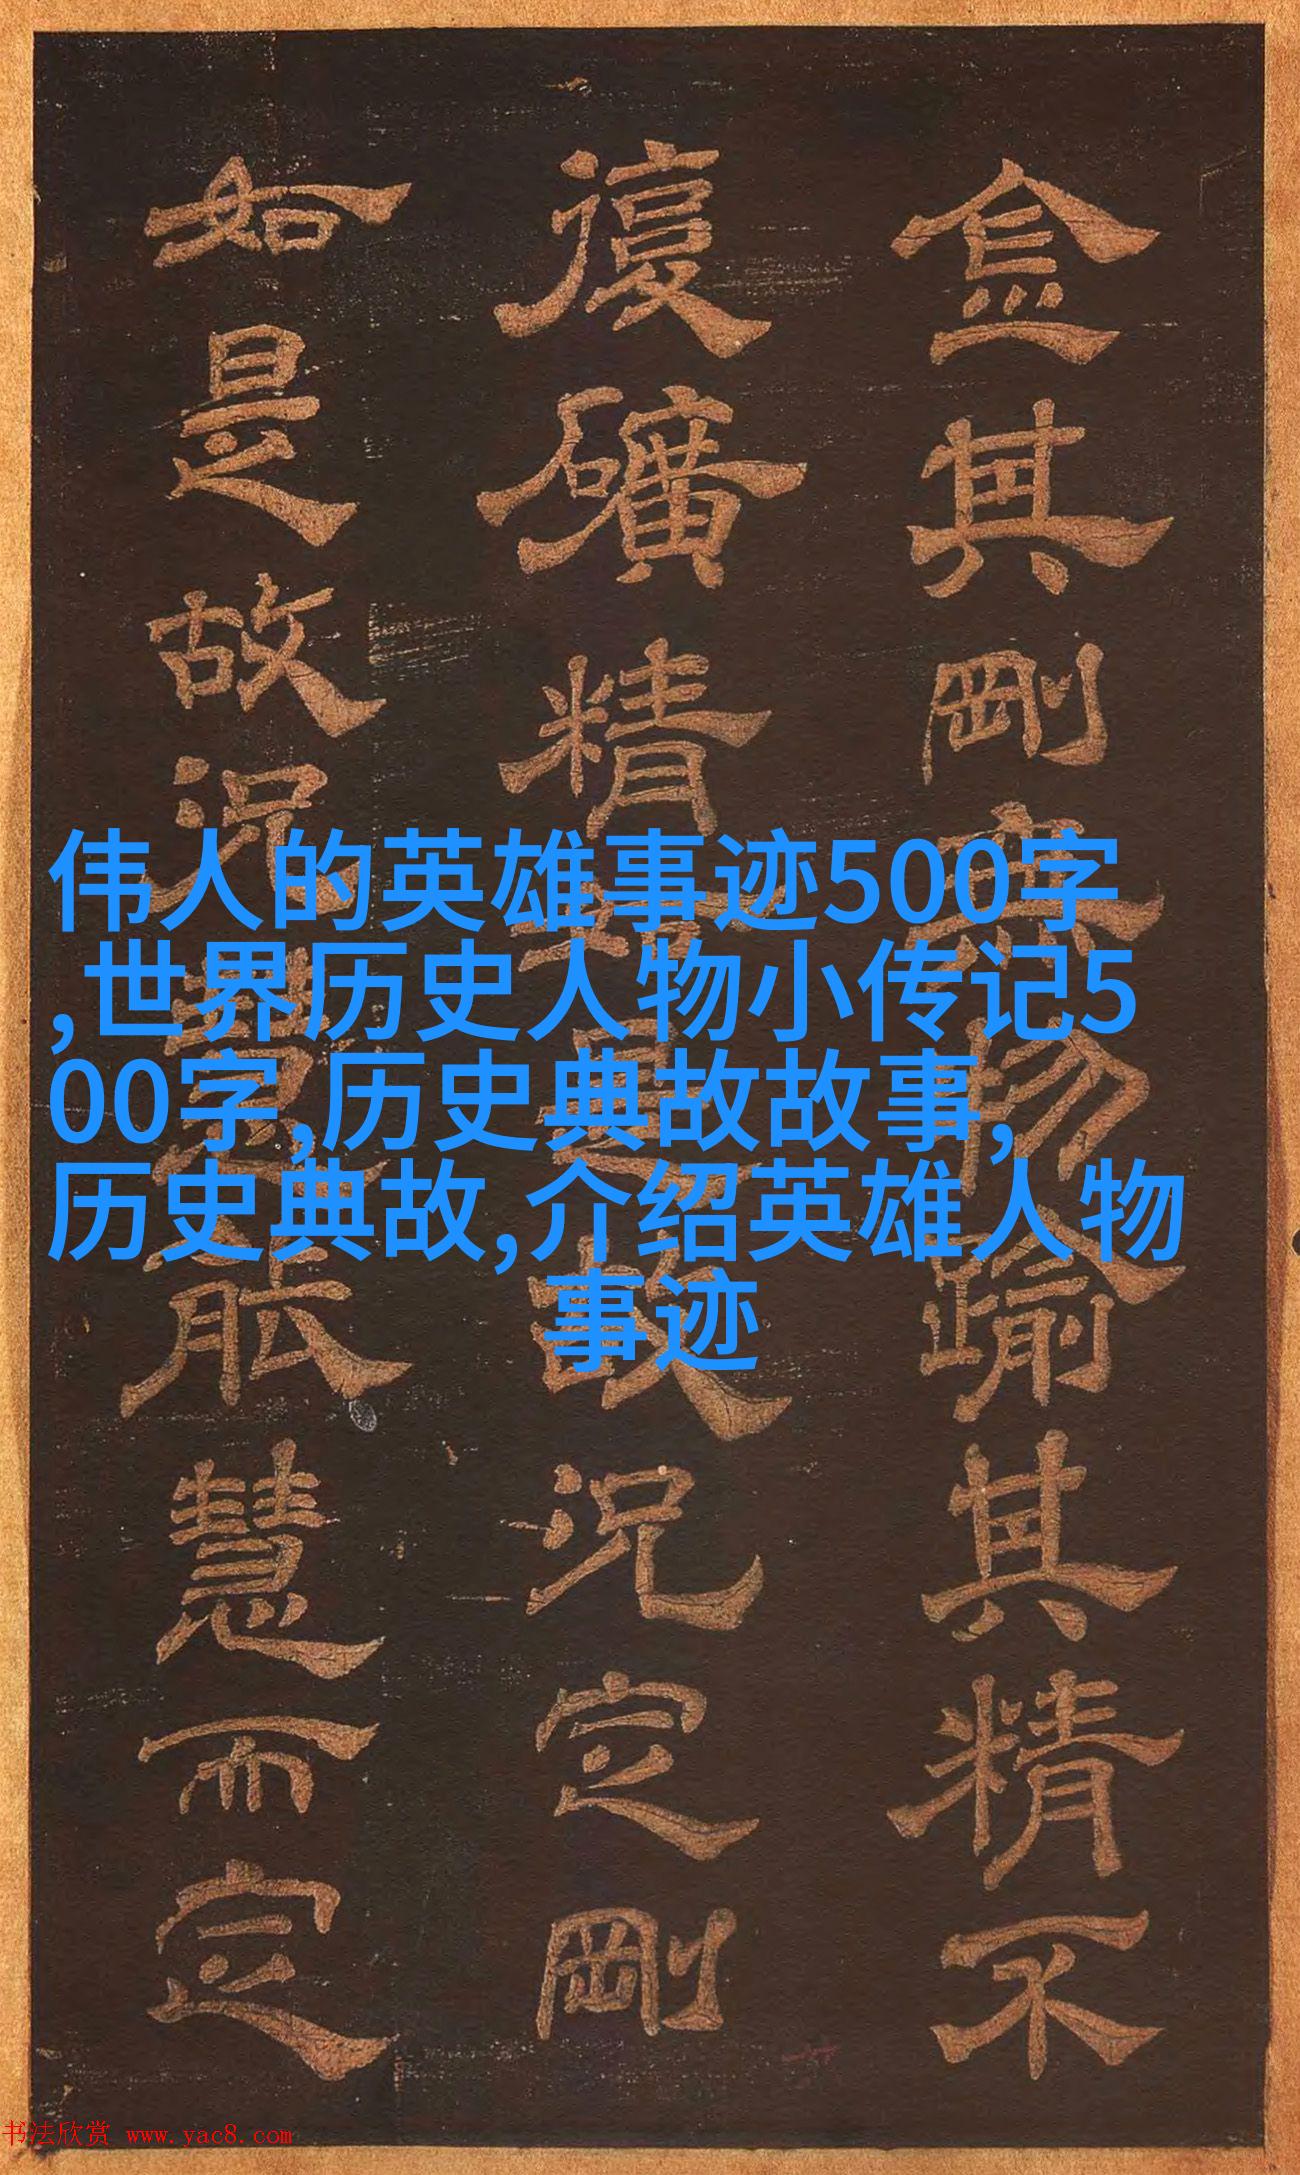 金其剛無物踰其精不
復礦精是故況定剛
如是故況慧能慧而定
伟人的英雄事迹500字
,世界历史人物小传记5
00字,历史典故故事,
历史典故,介绍英雄人物
事迹
书法欣赏 www.yac8.com